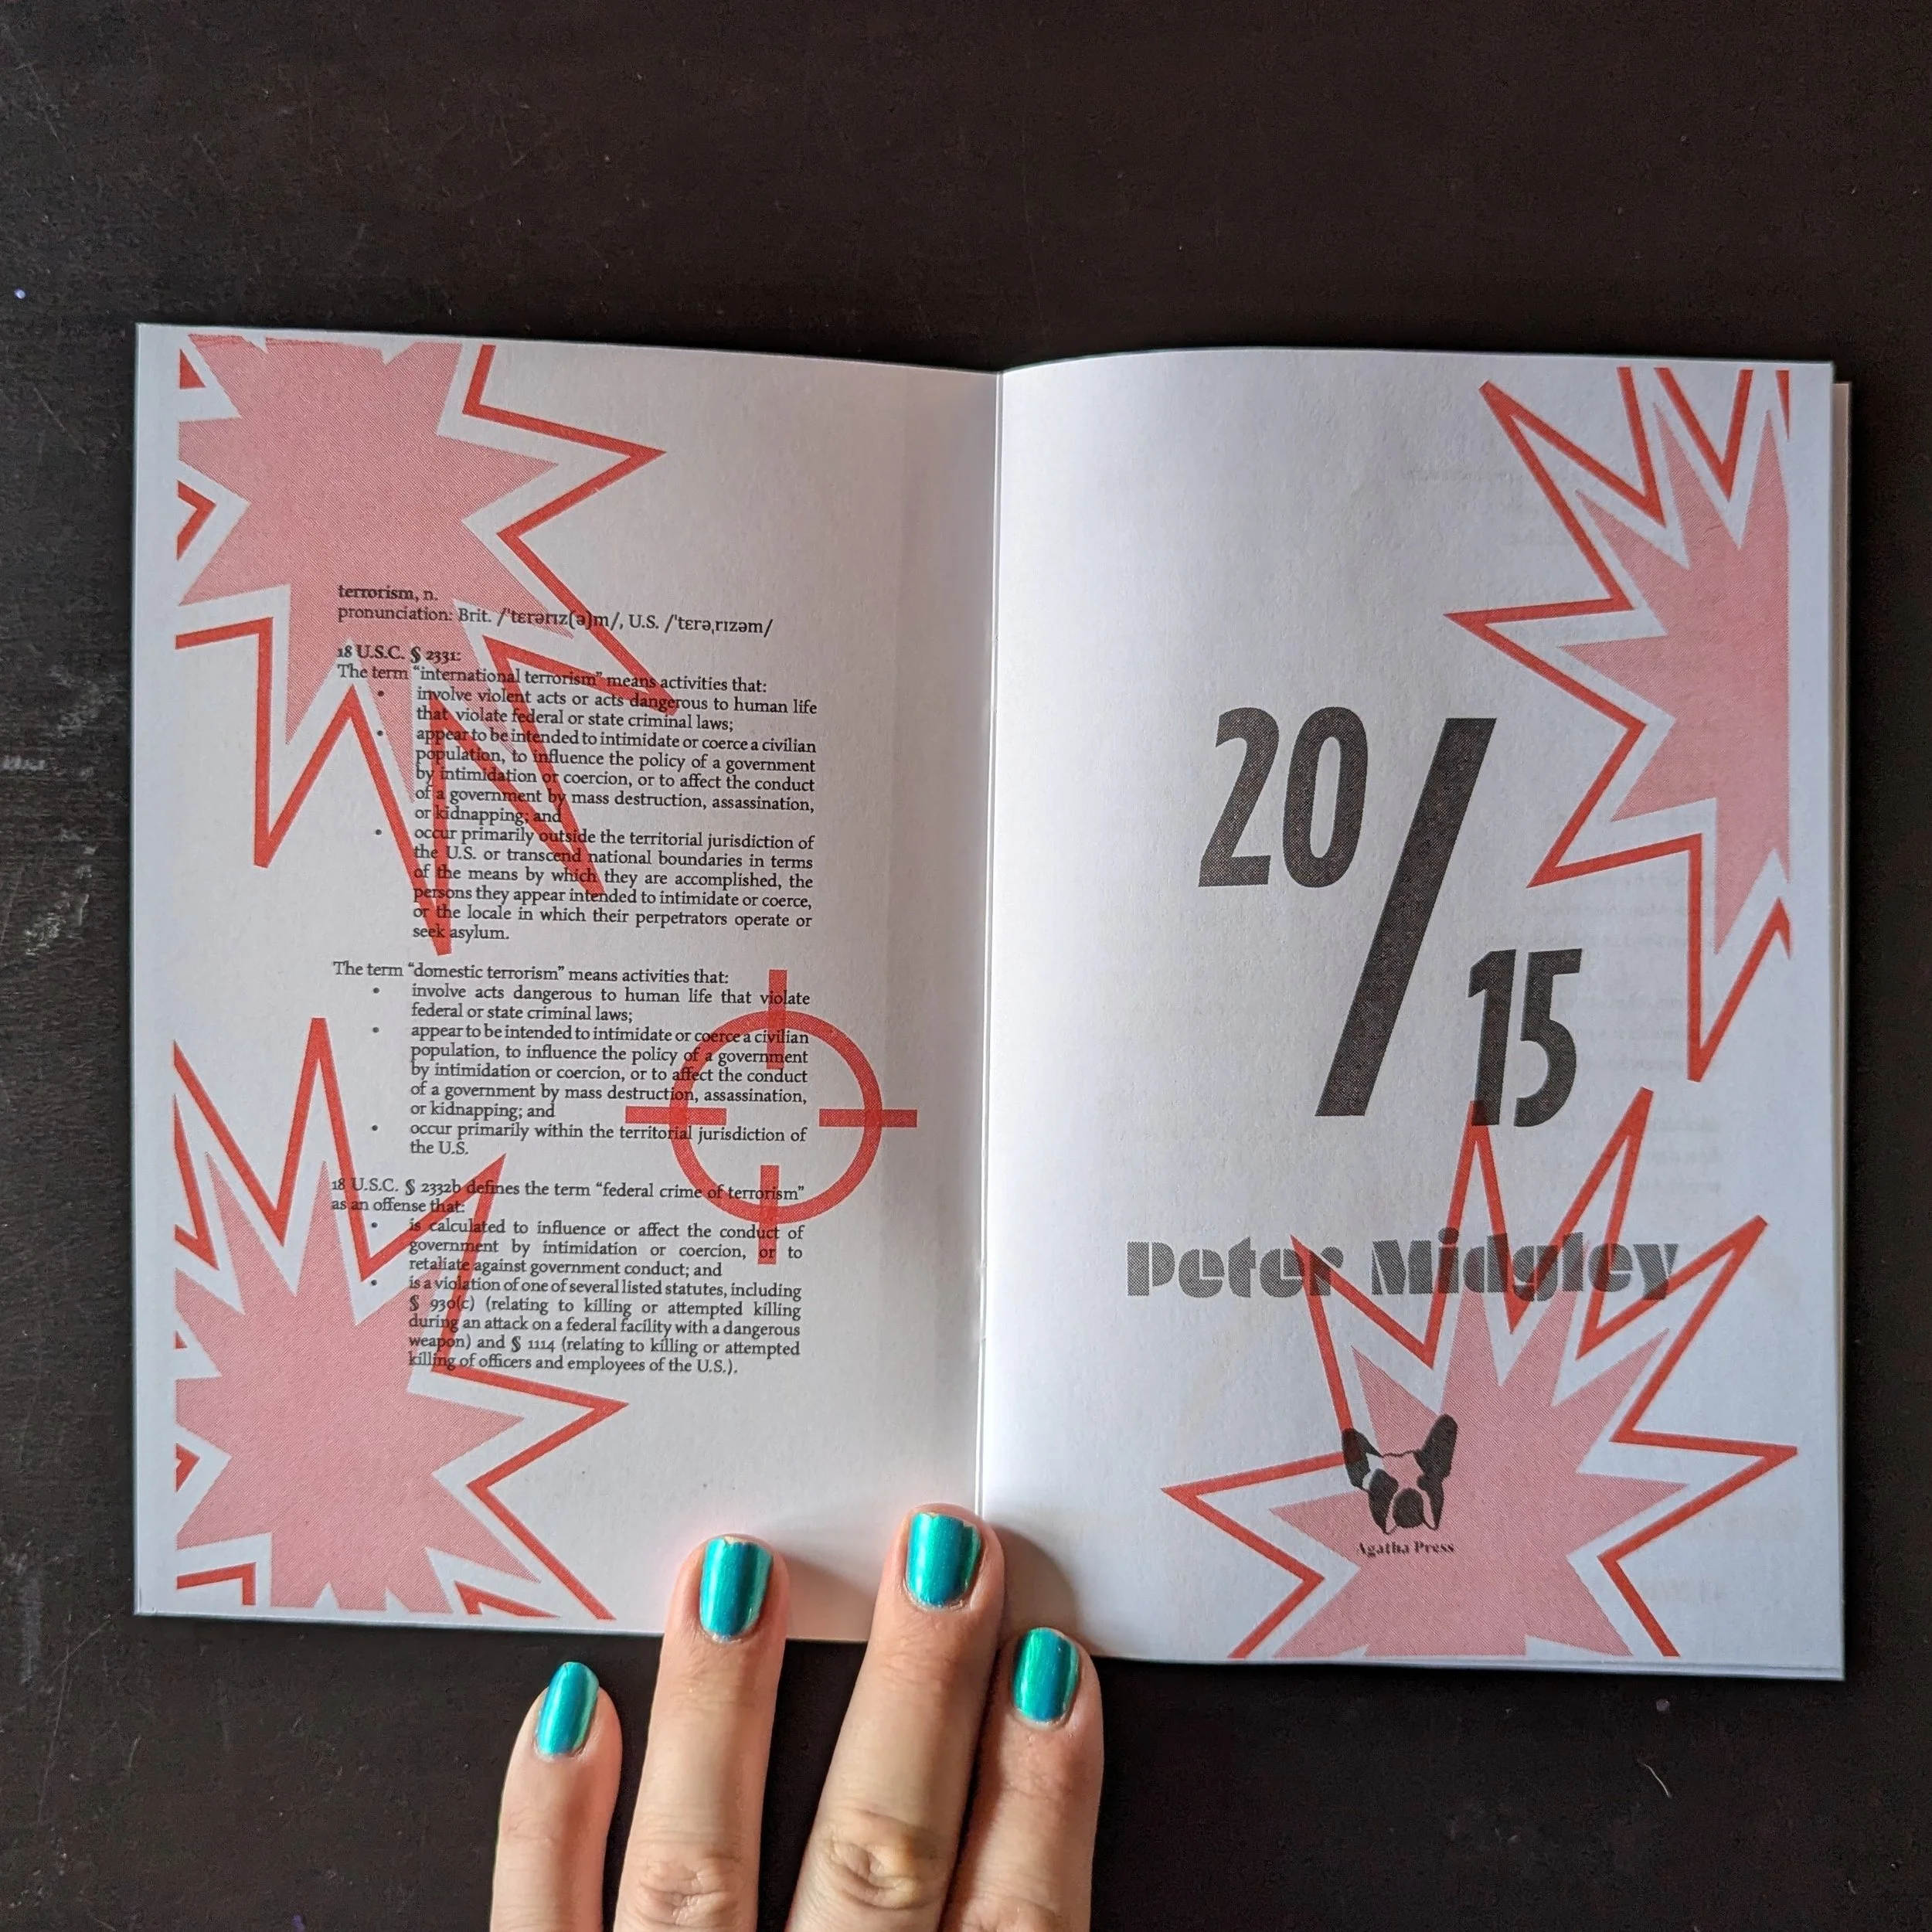 terrorism, n.
pronunciation: Brit. /ˈtɛrərɪz(ə)m/, U.S. /ˈtɛrəˌrɪzəm/
18 U.S.C. § 2331:
The term “international terrorism” means activities that:
• involve violent acts or acts dangerous to human life
that violate federal or state criminal laws;
• appear to be intended to intimidate or coerce a civilian
population, to influence the policy of a government
by intimidation or coercion, or to affect the conduct
of a government by mass destruction, assassination,
or kidnapping; and
• occur primarily outside the territorial jurisdiction of
the U.S. or transcend national boundaries in terms
of the means by which they are accomplished, the
persons they appear intended to intimidate or coerce,
or the locale in which their perpetrators operate or
seek asylum.
The term “domestic terrorism” means activities that:
• involve acts dangerous to human life that violate
federal or state criminal laws;
• appear to be intended to intimidate or coerce a civilian
population, to influence the policy of a government
by intimidation or coercion, or to affect the conduct
of a government by mass destruction, assassination,
or kidnapping; and
• occur primarily within the territorial jurisdiction of
the U.S.
18 U.S.C. § 2332b defines the term “federal crime of terrorism”
as an offense that:
• is calculated to influence or affect the conduct of
government by intimidation or coercion, or to
retaliate against government conduct; and
• is a violation of one of several listed statutes, including
§ 930(c) (relating to killing or attempted killing
during an attack on a federal facility with a dangerous
weapon) and § 1114 (relating to killing or attempted
killing of officers and employees of the U.S.).
20/
15
Peter Midgley
Agatha Press